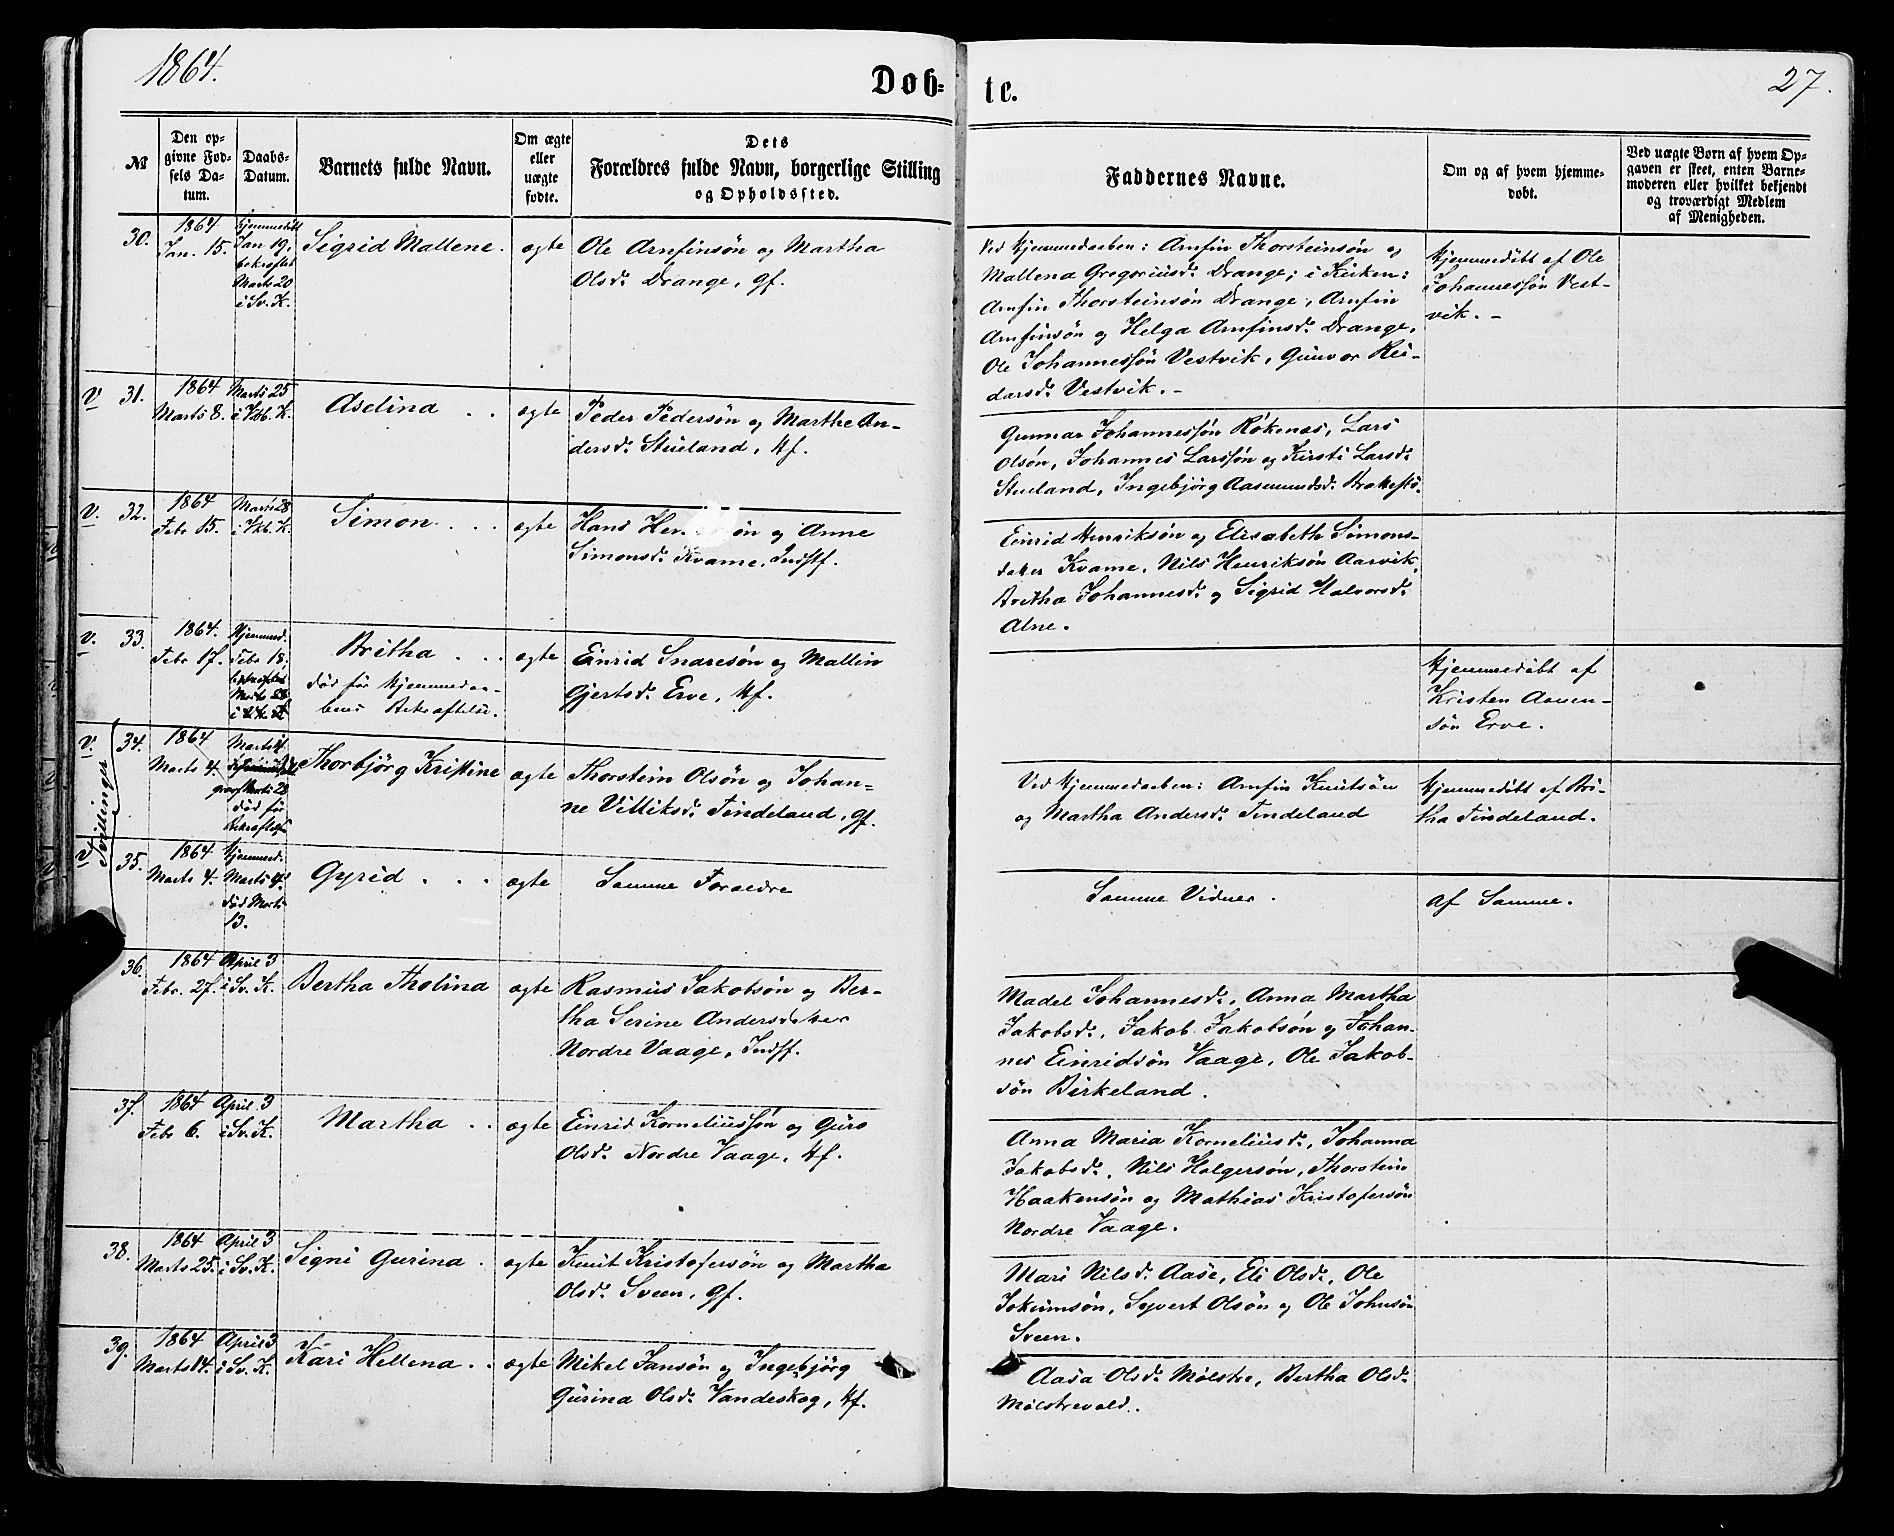 1864.
Døb=
te.
27.
№
Den op=
givne Fød=
sels Da=
tum.
Daabs=
Datum.
Barnets fulde Navn.
Om ægte
eller
uægte
fødte.
Dets
Forældres fulde Navn, borgerlige Stilling
og Opholdssted.
Faddernes Navne.
Om og af hvem hjemme=
døbt.
Ved uægte Børn af hvem Op=
gaven er skeet, enten Barne=
moderen eller hvilket bekjendt
og troværdigt Medlem
af Menigheden.
30.
1864
Jan. 15.
Hjemmedøbt
Jan 19,
bekræftet
Marts 20
i Sv. K.
Sigrid Mallene.
ægte
Ole Arnfinsøn og Martha
Olsd. Drange, Gf.
Ved Hjemmedaaben: Arnfin Thorsteinsøn og
Mallena Gregoriusd. Drange; i Kirken:
Arnfin Thorsteinsøn Drange, Arnfin
Arnfinsøn og Helga Arnfinsd. Drange,
Ole Johannessøn Vestvik, Gunvor Rei-
darsd. Vestvik. -
Hjemmedøbt af Ole
Johannessøn Vest-
vik. -
V
31.
1864
Marts 8.
Marts 25
i Vkb. K.
Aselina . .
ægte
Peder Pedersøn og Marthe An-
dersd. Stueland, Hf.
Gunnar Johannessøn Røkenæs, Lars
Olsøn, Johannes Larssøn og Kirsti Larsd.
Stueland, Ingebjørg Aasmundsd.
V.
32.
1864
Febr 15.
Marts 28
i Vkb. K.
Simon . . .
ægte
Hans Hen søn og Anne
Simonsd. Kvame, Indstf.
Einrid Henriksøn og Elisabeth Simons-
datter Kvame, Nils Henriksøn Aarvik,
Britha Johannesd. og Sigrid Halvorsd.
Alne.
V.
33.
1864.
Febr 17.
Hjemmed.
Febr 18,
Britha . . .
død før Hjemmedaa-
bens Bekræftelse.
ægte
Einrid Snaresøn og Mallin
Gjertsd. Erve, Hf.
Hjemmedøbt af
Kristen Aamen-
søn Erve.
V.
Tvillinger
34.
1864
Marts 4.
Marts 4
død før
Bekræftelse
Thorbjørg Kristine
ægte
Thorstein Olsøn og Johan-
ne Villiksd. Tindeland, Gf.
Ved Hjemmedaaben: Arnfin Knutsøn
og Martha Andersd. Tindeland
Hjemmedøbt af Bri-
tha Tindeland.
V
35.
1864
Marts 4.
Hjemmed.
Marts 4.
død Marts
13.
Gyrid . . .
ægte
Samme Forældre
Samme Vidner.
af Samme.
36.
1864
Febr. 27.
April 3
i Sv. K.
Bertha Tholina
ægte
Rasmus Jakobsøn og Ber-
tha Serine Andersdatter
Nordre Vaage, Indstf.
Madel Johannesd., Anna Martha
Jakobsd., Jakob Jakobsøn og Johan-
nes Einridsøn Vaage, Ole Jakob-
søn Birkeland.
37.
1864
Febr 6.
April 3
i Sv. K.
Martha . .
ægte
Einrid Korneliussøn og Guro
Olsd. Nordre Vaage, Hf.
Anna Maria Korneliusd., Johanna
Jakobsd., Nils Holgersøn, Thorstein
Haakensøn og Mathias Kristofersøn
Nordre Vaage.
38.
1864
Marts 25.
April 3
i Sv. K.
Signi Gurina .
ægte
Knut Kristofersøn og Martha
Olsd. Sveen, Gf.
Mari Nilsd. Aase, Eli Olsd., Ole
Jokumsøn, Syvert Olsøn og Ole Johnsøn
Sveen.
39.
1864
Marts 14.
April 3
i Sv. K.
Kari Hellena . .
ægte
Mikel Jansøn og Ingebjørg
Gurina Olsd. Vandeskog, Hf.
Aasa Olsd. Mølstre, Bertha Olsd.
Mølstrevold.